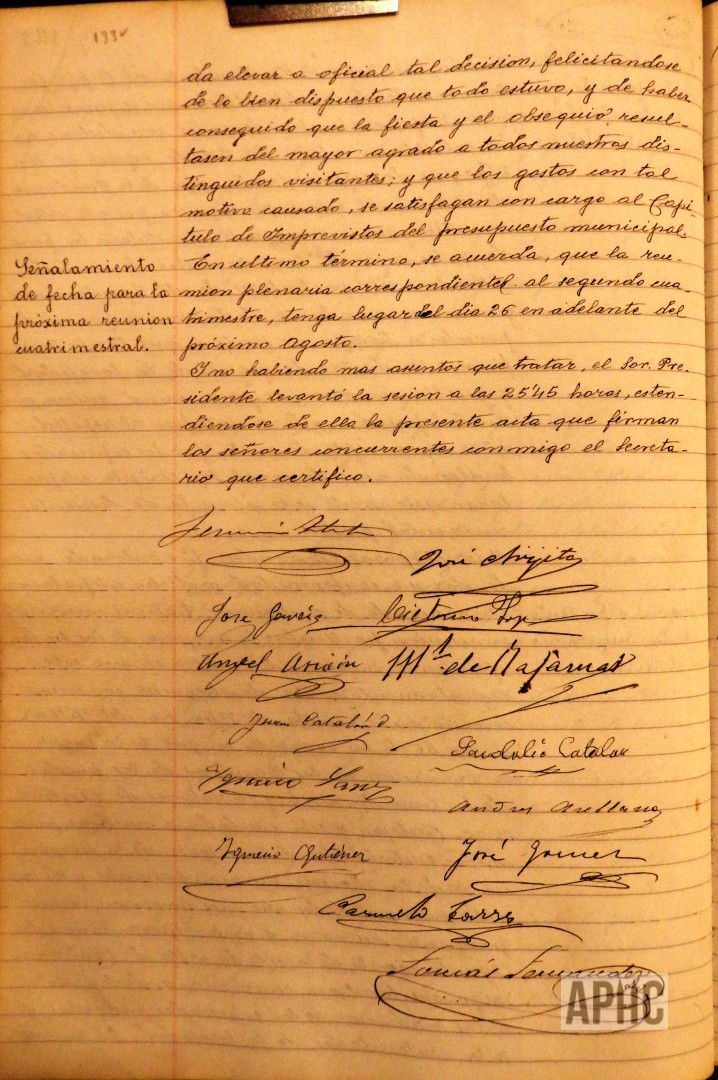 1934
da elevar a oficial tal decision, felicitandose
de lo bien dispuesto que todo estuvo, y de haber
conseguido que la fiesta y el obsequio resul-
tasen del mayor agrado a todos nuestros dis-
tinguidos visitantes; y que los gastos con tal
motivo causado, se satisfagan con cargo al Capi-
tulo de Imprevistos del presupuesto municipal.
Señalamiento
de fecha para la
próxima reunion
cuatrimestral.
En ultimo término, se acuerda, que la reu-
nion plenaria correspondiente al segundo cua-
trimestre, tenga lugar del dia 26 en adelante del
próximo Agosto.
I no habiendo mas asuntos que tratar, el Sor. Pre-
sidente levantó la sesion a las 25'45 horas, esten-
diendose de ella la presente acta que firman
los señores concurrentes conmigo el Secreta-
rio que certifico.
José Arijita
Jose Garcia
Angel Arizón
Mª de
Juan Catalán
Pandolio Catalan
Ignacio Sanz
Andres Arellano
Ignacio Gutiérrez
José Gomez
Carmelo Forres
Tomás Fernandez
APHC